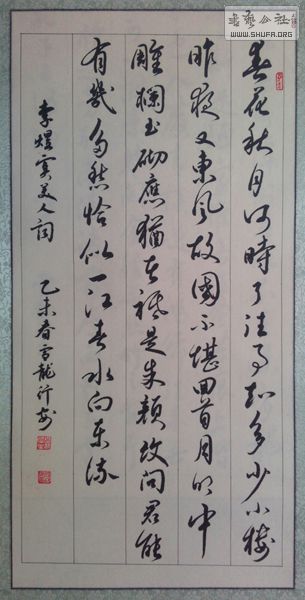 書藝公社
WWW.SHUFA.ORG
春花秋月何時了往事知多少小樓
昨夜又東風故國不堪回首月明中
雕欄玉砌應猶在祗是朱顏改問君能
有幾多愁恰似一江春水向東流
李煜虞美人詞
乙未春 龍行書